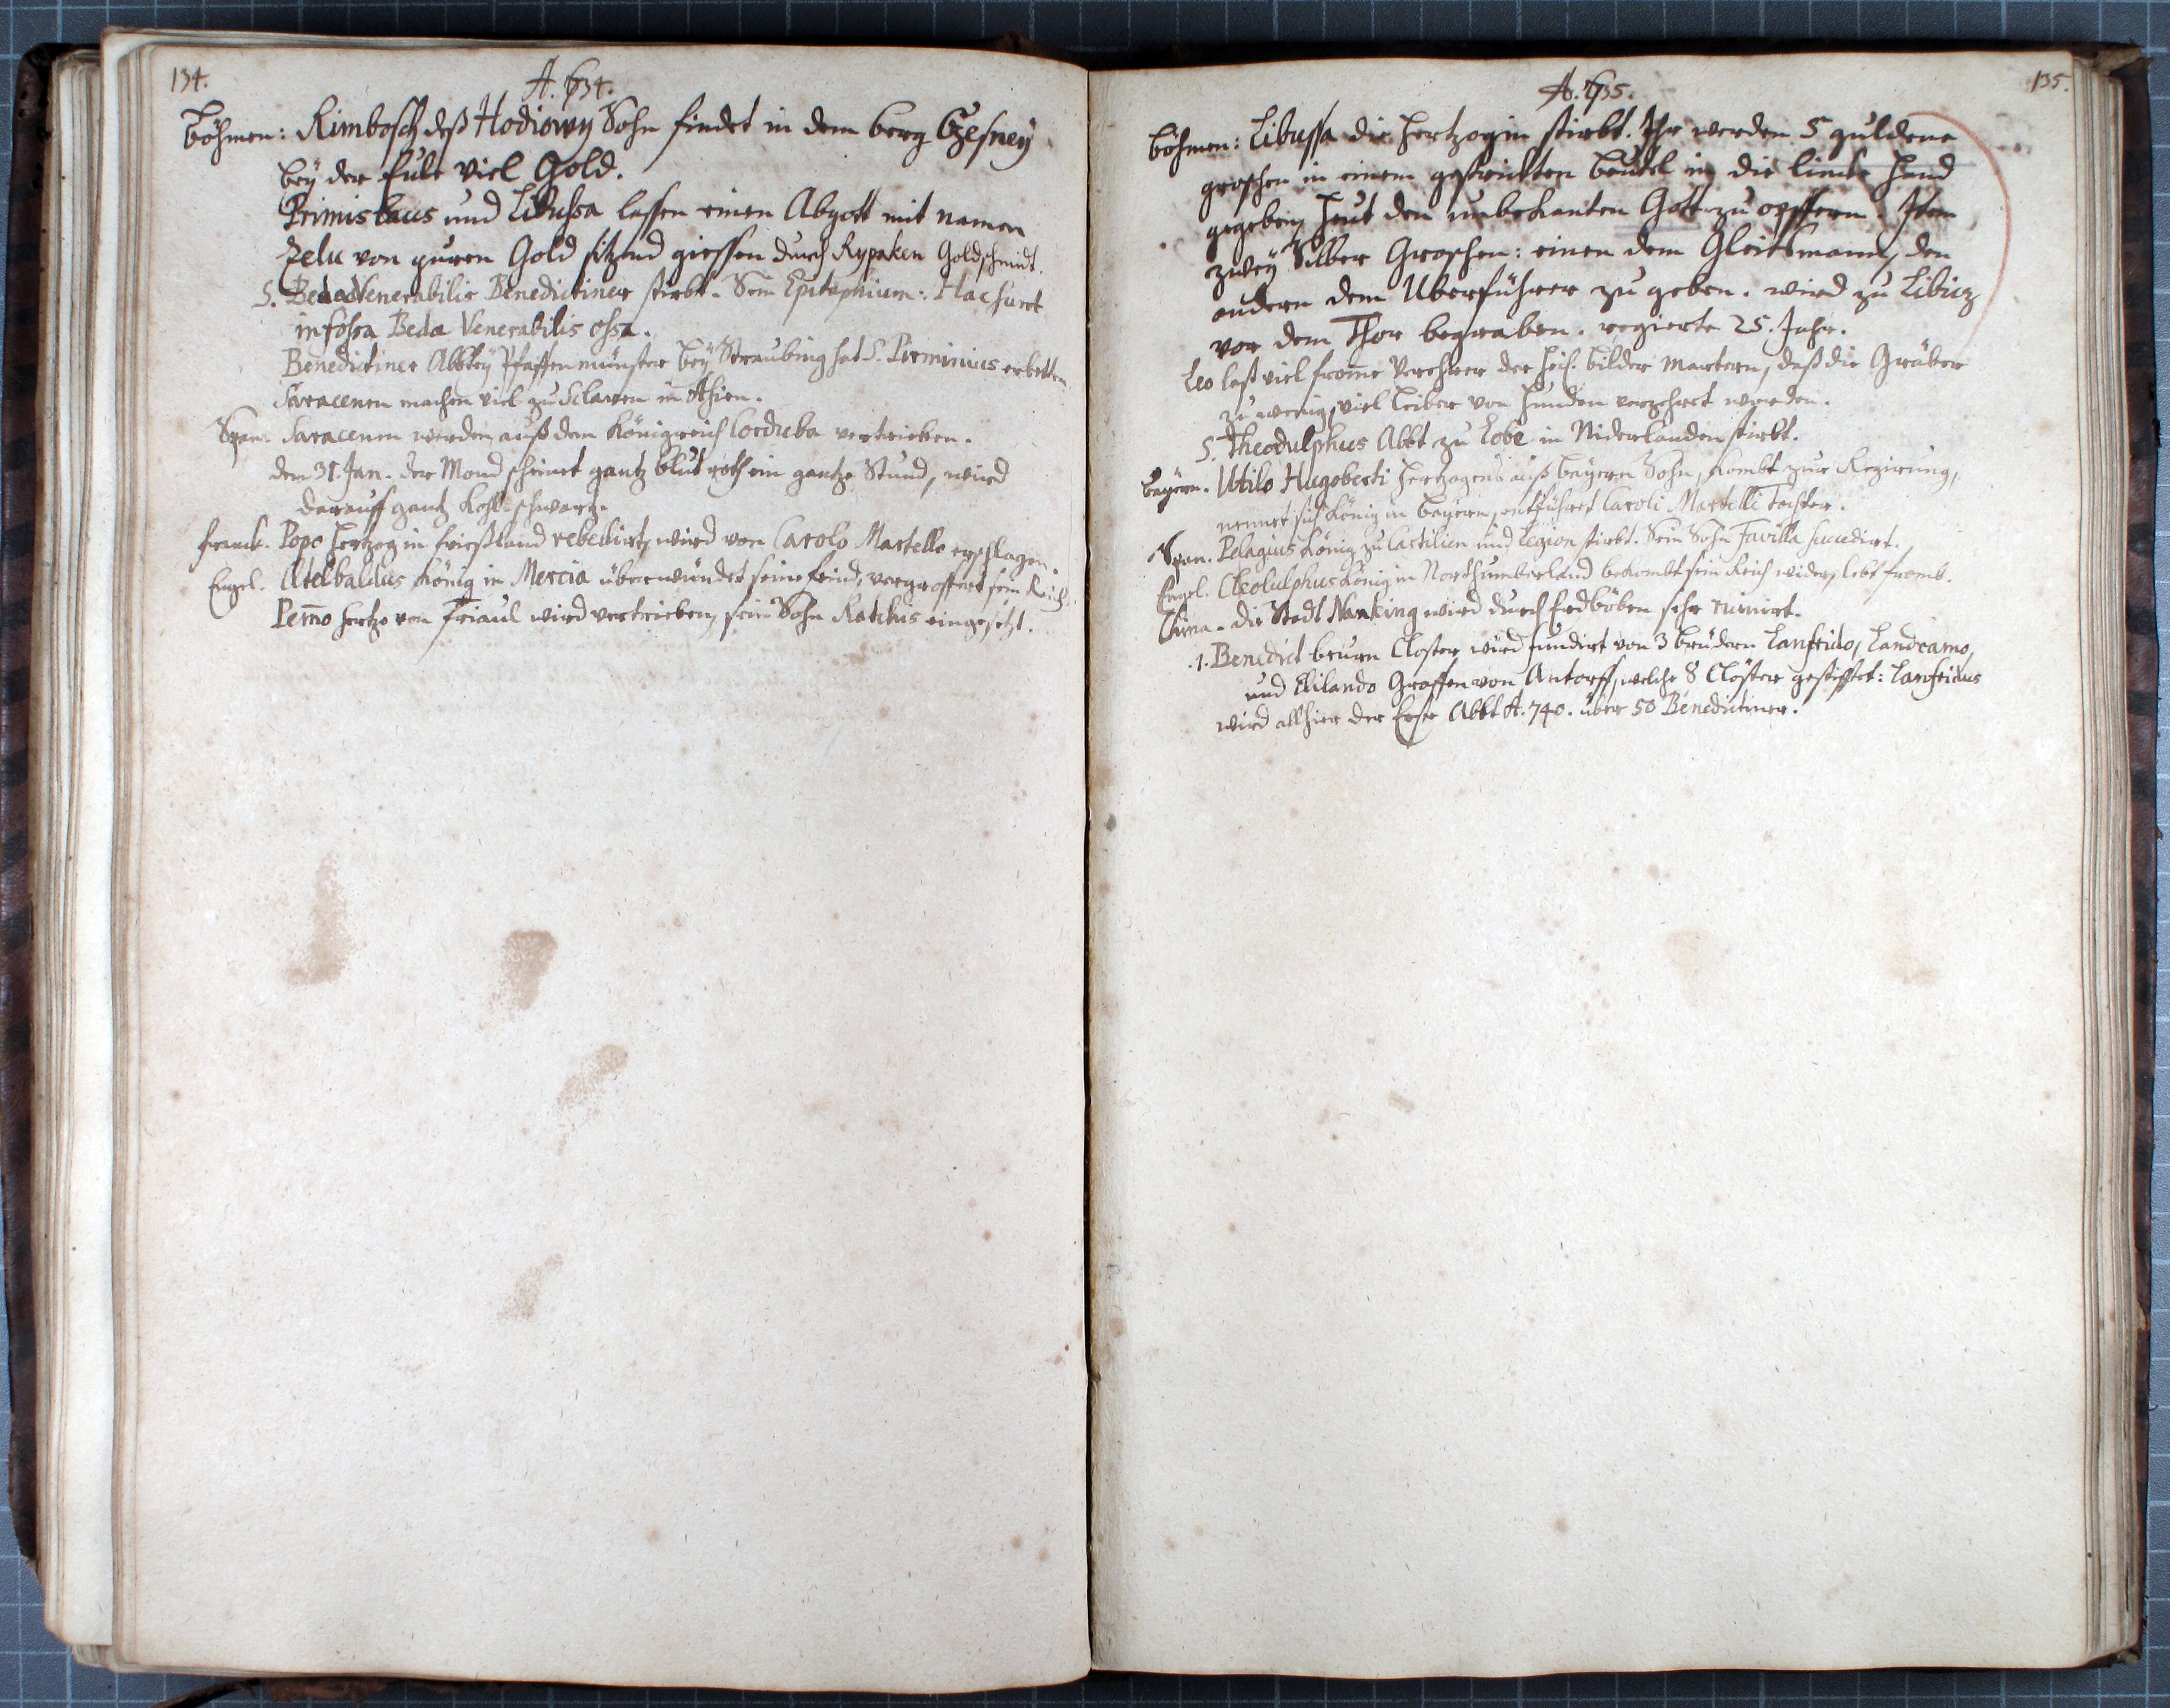 134.
A. 734.
Böhmen: Rimbosch deß Hodiowy Sohn findet in dem berg Gzesney
bey der Eule viel Gold.
Primislaus und Libussa lassen einen Abgott mit namen
Zelu von puren Gold sitzend giessen durch Rypaken Goldschmidt.
S. Beda Venerabilis Benedictiner stirbt. Sein Epitaphium: Hac sunt
in fossa Bedæ Venerabilis ossa.
Benedictiner Abbtey Pfaffenmünster bey Straubing hat S. Pirminius erbetten
Saracenen machen viel zu Sclaven in Asien.
Span. Saracenen werden auß dem Königreich Corduba vertrieben.
den 31. Jan. der Mond scheinet gantz blut roth ein gantze Stund, wird
darauff gantz kohlschwartz.
Franck. Popo Hertzog in Frießland rebellirt, wird von Carolo Martello erschlagen.
Engel. Atelbaldus König in Mercia überwündet seine feind, vergrossert sein Reich.
Pem̄o Hertzo von Friaul wird vertrieben, sein Sohn Ratchis eingesetzt.
135.
A. 735.
Böhmen: Libussa die Hertzogin stirbt. Ihr werden 5 guldene
groschen in einem gestrickten beutel in die lincke Hand
gegeben, heut den unbekanten Gott zu opffern. Item
zwey Silber Groschen: einen dem Gleitsmann, den
andern dem Uberführer zu geben. wird zu Libicz
vor dem Thor begraben. regierte 25. Jahr.
Leo last viel from̄e Verehrer der heil. bilder martern, daß die Gräber
zu wenig, viel Leiber von hunden verzehret worden.
S. Theodulphus Abbt zu Lobe in Niderlanden stirbt.
Bayern. Utilo Hugoberti Hertzogens auß bayern Sohn, kombt zur Regirung,
nennet sich König in bayern, entführet Caroli Martelli tochter.
Span. Pelagius König zu Castilien und Legion stirbt. Sein Sohn Favilla succedirt.
Engel. Cleolulphus König in Northumberland bekombt sein Reich wider, lebt fromb.
China. die Stadt Nanking wird durch Erdböben sehr ruinirt.
.1. Benedict beurn Closter wird fundirt von 3 brüdern Lanfrido, Landramo,
und Elilando Graffen von Antorff, welche 8 Clöster gestifftet: Lanfridus
wird allhier der Erste Abbt A. 740. über 50 Benedictiner.